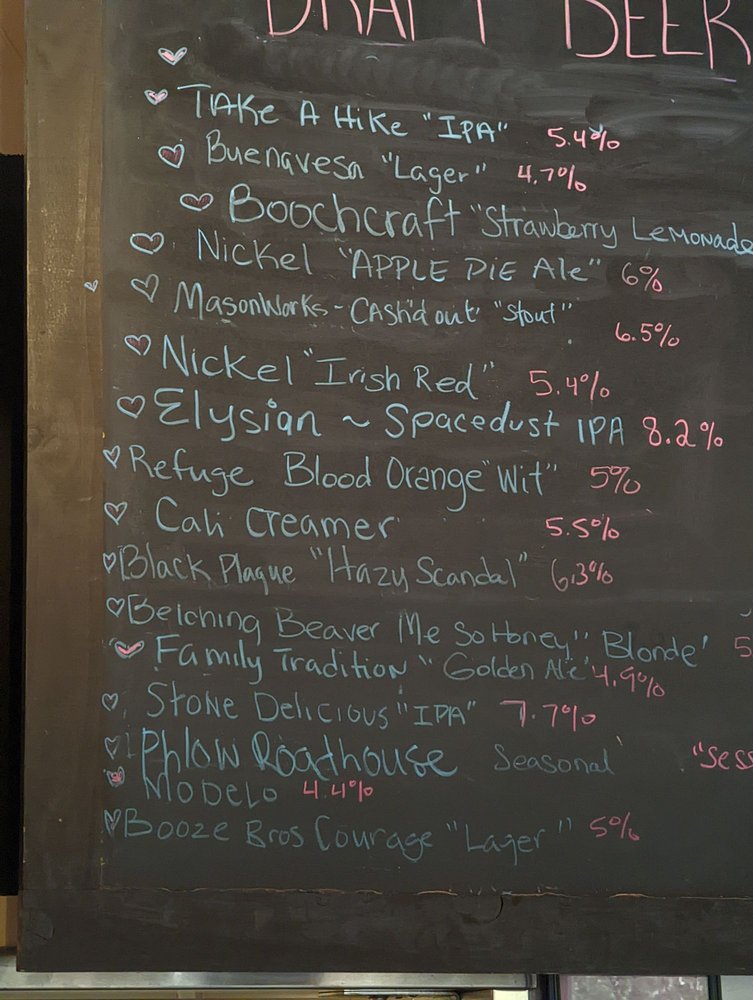 DRAFT BEER
TAKE A HIKE "IPA" 5.4%
Buenavesa "Lager" 4.7%
Boochcraft "Strawberry Lemonade
Nickel "APPLE PIE Ale" 6%
MasonWorks - CAsh'd out "stout" 6.5%
Nickel "Irish Red" 5.4%
Elysian ~ Spacedust IPA 8.2%
Refuge Blood Orange "Wit" 5%
Cali Creamer 5.5%
Black Plague "Hazy Scandal" 6.3%
Belching Beaver Me So Honey "Blonde' 5
Family Tradition "Golden Ale" 4.9%
Stone Delicious "IPA" 7.7%
Phlow Roadhouse Seasonal "Sess
Modelo 4.4%
Booze Bros Courage "Lager" 5%